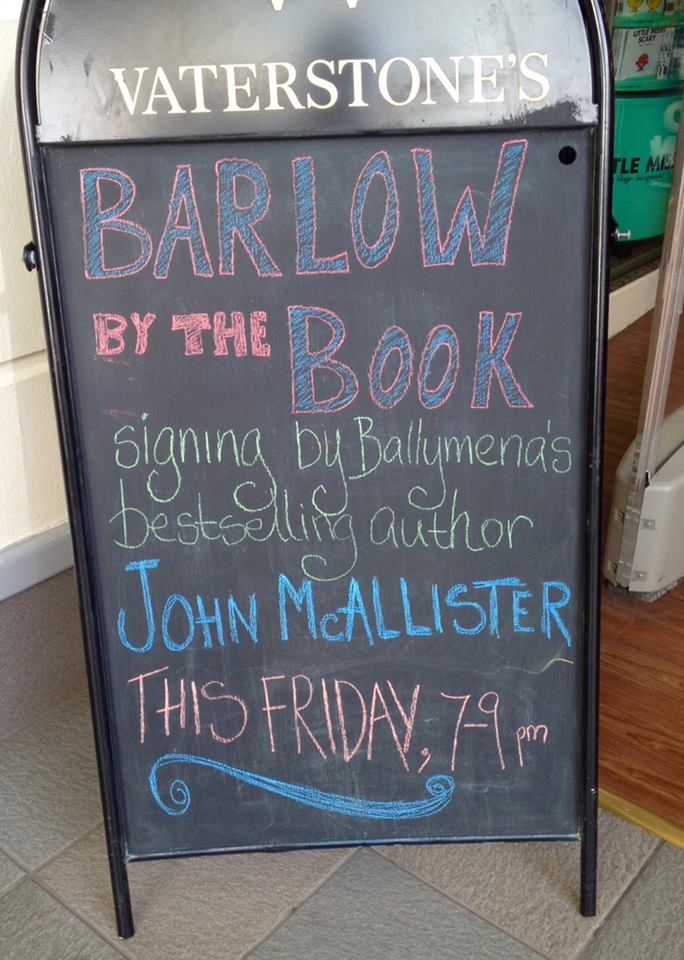 VATERSTONE'S
BARLOW
BY THE BOOK
signing by Ballymena's
bestselling author
JOHN McALLISTER
THIS FRIDAY, 7-9 pm
LITTLE MISS
SCARY
TLE MIS